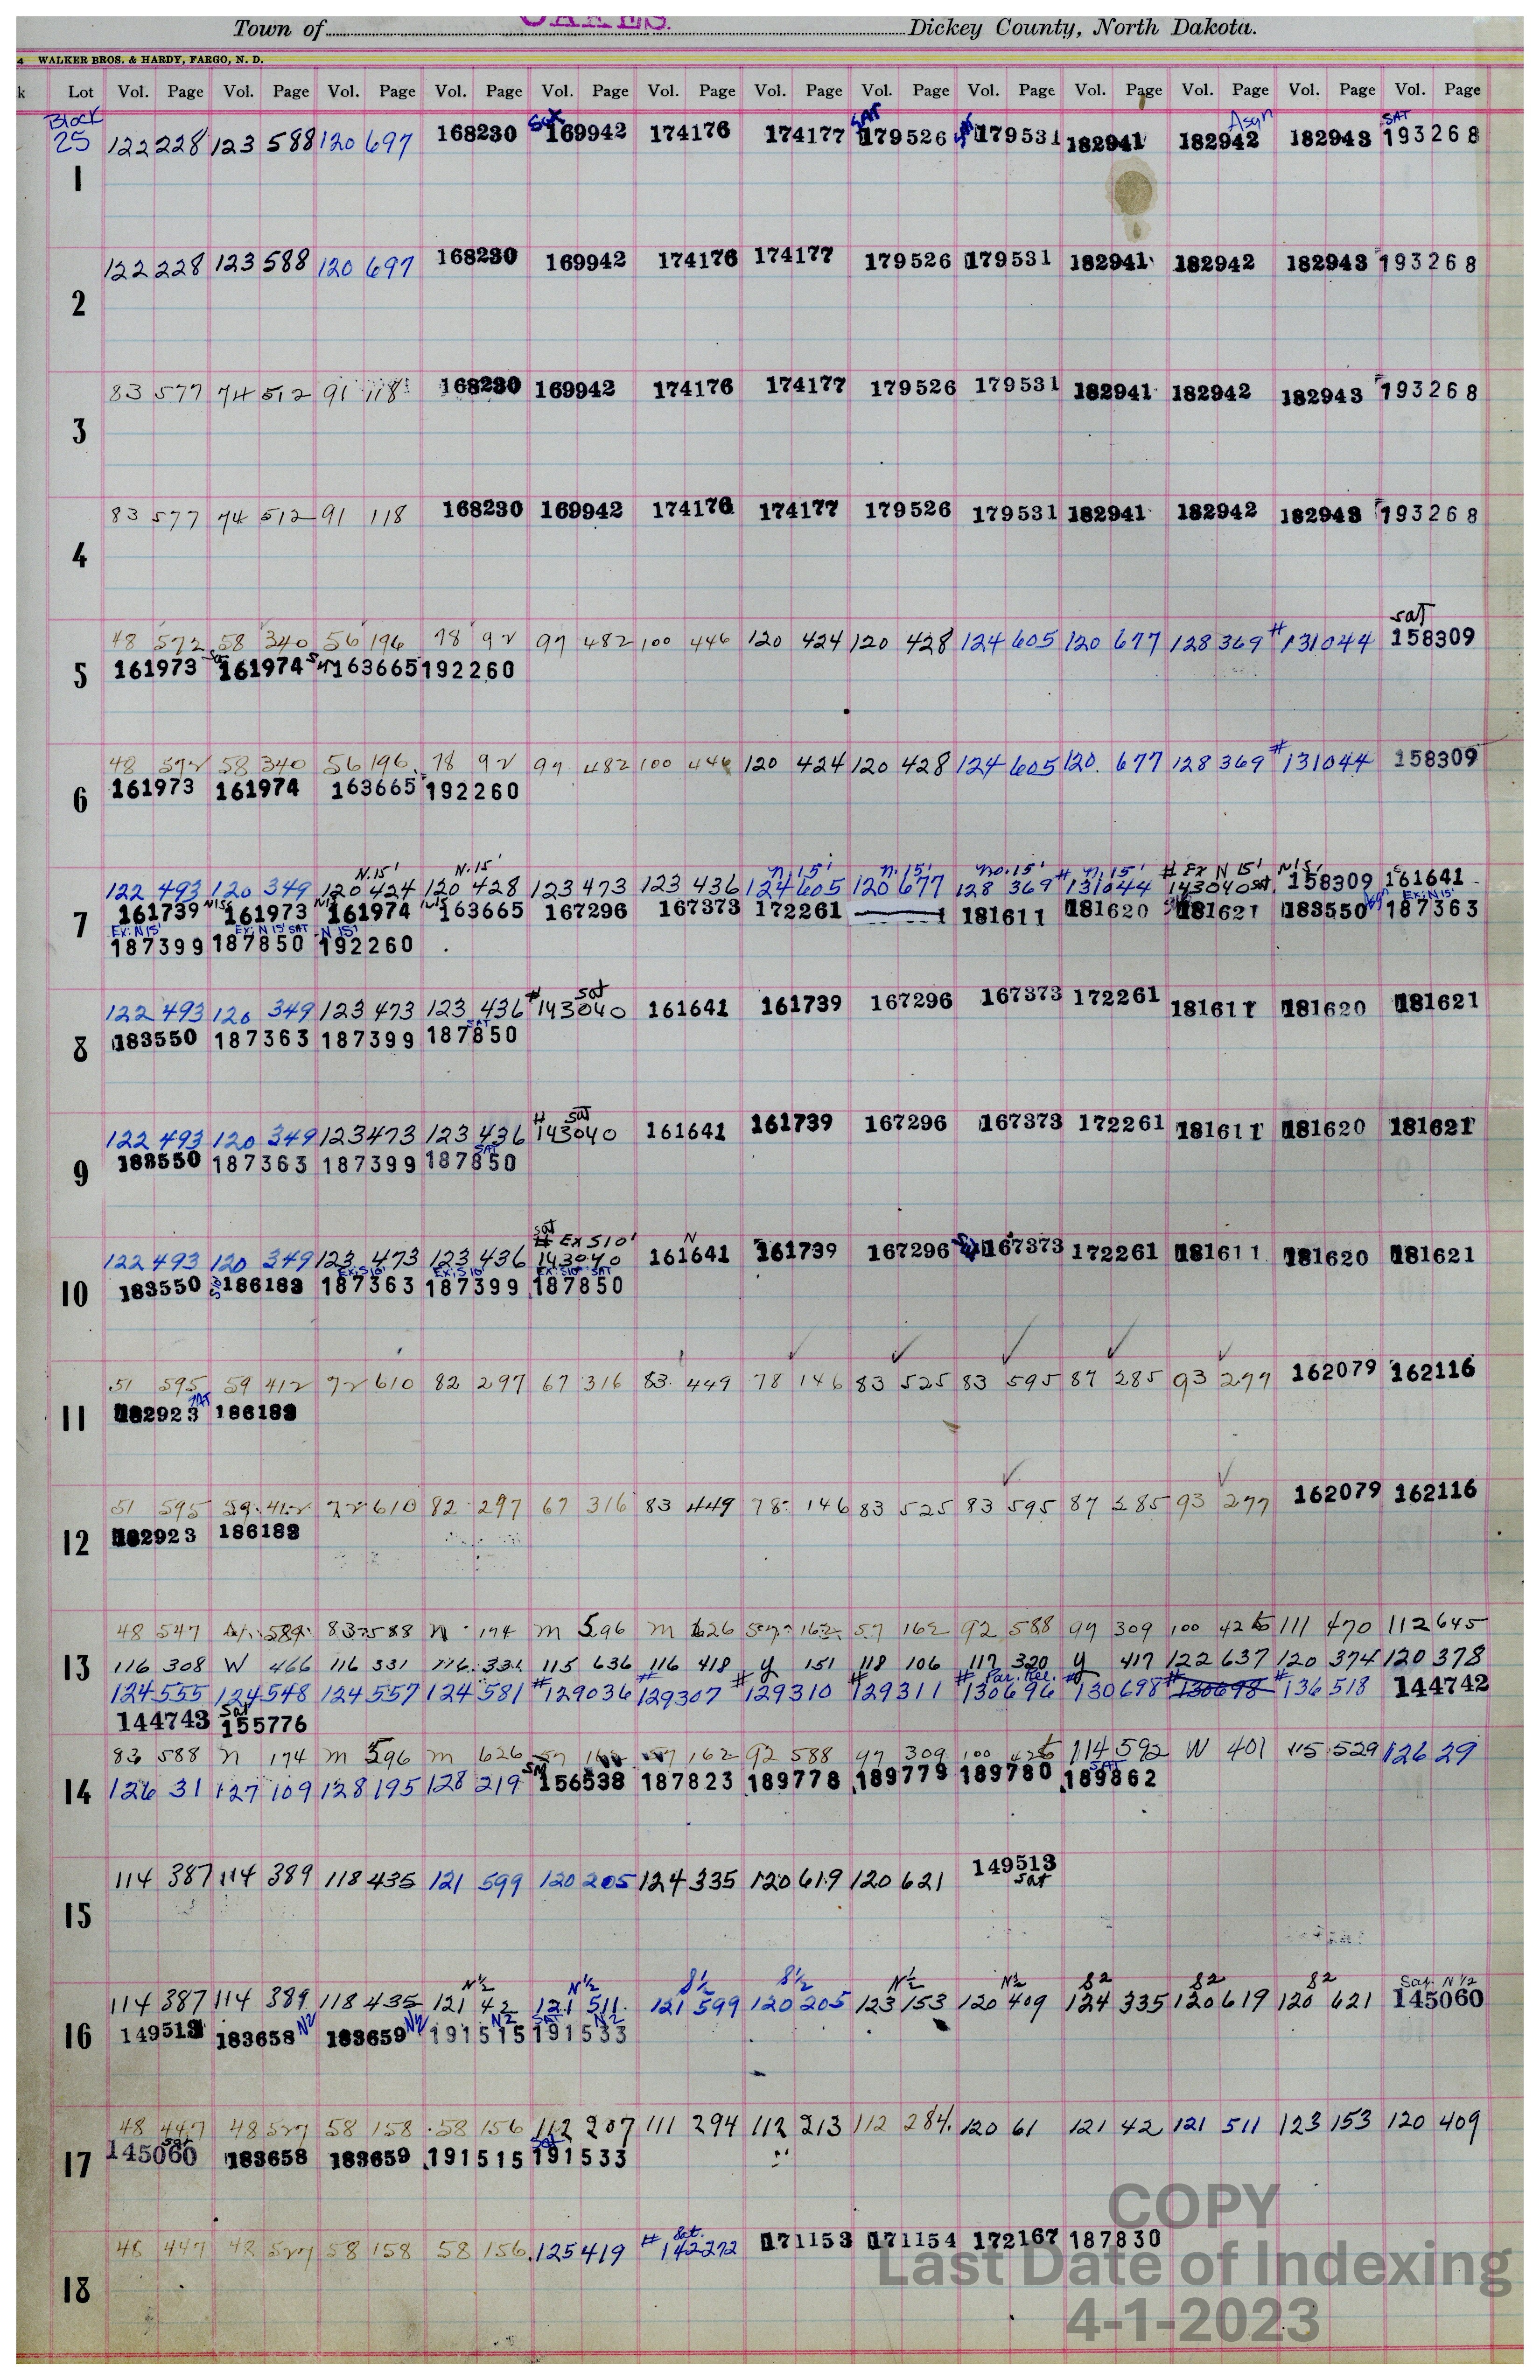 Town of OAKES. Dickey County, North Dakota.
4 WALKER BROS. & HARDY, FARGO, N. D.
k Lot Vol. Page Vol. Page Vol. Page Vol. Page Vol. Page Vol. Page Vol. Page Vol. Page Vol. Page Vol. Page Vol. Page Vol. Page Vol. Page
Block SAT Asgn SAT
25 122 228 123 588 120 697 168230 169942 174176 174177 179526 179531 182941 182942 182943 193268
1
122 228 123 588 120 697 168230 169942 174176 174177 179526 179531 182941 182942 182943 193268
2
83 577 74 512 91 118 168230 169942 174176 174177 179526 179531 182941 182942 182943 193268
3
83 577 74 512 91 118 168230 169942 174176 174177 179526 179531 182941 182942 182943 193268
4
sat
48 572 58 340 56 196 78 92 97 482 100 446 120 424 120 428 124 605 120 677 128 369 #131044 158309
5 161973 161974 163665 192260
48 572 58 340 56 196 78 92 97 482 100 446 120 424 120 428 124 605 120 677 128 369 #131044 158309
6 161973 161974 163665 192260
N.15' N.15' N.15' N.15' No.15' N.15' # Ex N 15' N15'
122 493 120 349 120 424 120 428 123 473 123 436 124 605 120 677 128 369 #131044 143040 sat 158309 161641
7 161739 N15' 161973 N15' 161974 N15' 163665 167296 167373 172261 181611 181620 181621 183550 187363
Ex: N 15' Ex: N 15' SAT N 15' Ex: N 15'
187399 187850 192260
sat
122 493 120 349 123 473 123 436 #143040 161641 161739 167296 167373 172261 181611 181620 181621
SAT
8 183550 187363 187399 187850
sat
122 493 120 349 123 473 123 436 #143040 161641 161739 167296 167373 172261 181611 181620 181621
SAT
9 183550 187363 187399 187850
sat # Ex S10' N
122 493 120 349 123 473 123 436 143040 161641 161739 167296 167373 172261 181611 181620 181621
Ex: S10' Ex: S10' Ex: S10' SAT
10 183550 186183 187363 187399 187850
51 595 59 412 72 610 82 297 67 316 83 449 78 146 83 525 83 595 87 285 93 277 162079 162116
11 182923 SAT 186183
51 595 59 412 72 610 82 297 67 316 83 449 78 146 83 525 83 595 87 285 93 277 162079 162116
12 182923 186183
48 547 589 83 588 n 174 m 596 m 626 57 162 57 162 92 588 97 309 100 426 111 470 112 645
13 116 308 W 466 116 331 116 331 115 636 116 418 y 151 118 106 117 320 y 417 122 637 120 374 120 378
124 555 124 548 124 557 124 581 #129036 #129307 #129310 #129311 #130696 Par. Rel. #130698 #130698 #136518 144742
144743 Sat 155776
83 588 n 174 m 596 m 626 57 162 57 162 92 588 97 309 100 426 114 592 W 401 115 529 126 29
14 126 31 127 109 128 195 128 219 156538 187823 189778 189779 189780 SAT 189862
114 387 114 389 118 435 121 599 120 205 124 335 120 619 120 621 149513
sat
15
N½ N½ S½ S½ N½ N½ S2 S2 S2 Sat. N ½
114 387 114 389 118 435 121 42 121 511 121 599 120 205 123 153 120 409 124 335 120 619 120 621 145060
16 149513 183658 N2 183659 N2 191515 N2 SAT 191533 N2
48 447 48 527 58 158 58 156 112 207 111 294 112 213 112 284 120 61 121 42 121 511 123 153 120 409
17 145060 Sat 183658 183659 191515 Sat 191533
Sat.
48 447 48 527 58 158 58 156 125 419 #142272 171153 171154 172167 187830
18
COPY
Last Date of Indexing
4-1-2023